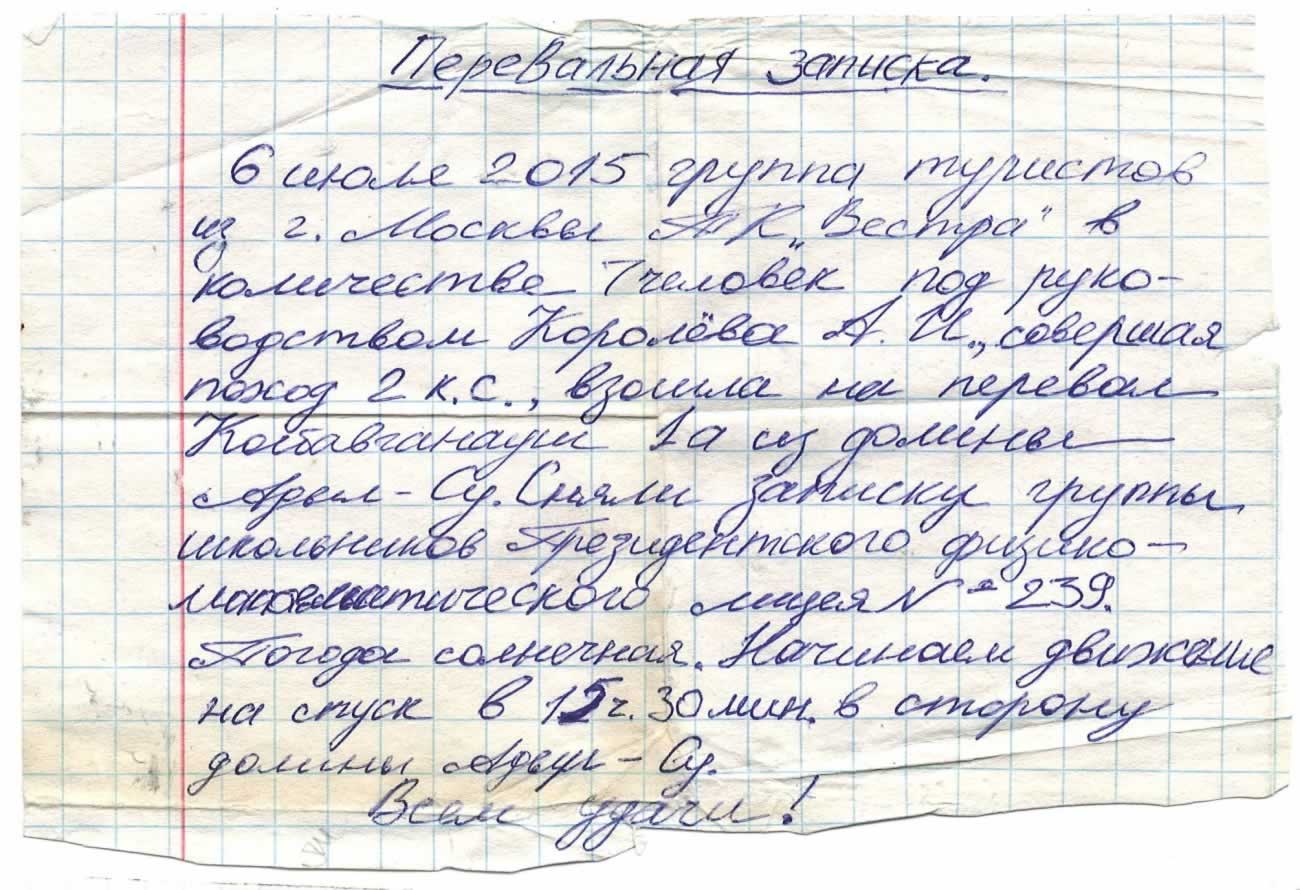 Перевальная записка.
6 июля 2015 группа туристов
из г. Москвы ТК „Вестра" в
количестве 7 человек под руко-
водством Королёва А. И., совершая
поход 2 к.с., взошла на перевал
Койавганауш 1а из долины
Адыл-Су. Сняли записку группы
школьников Президентского физико-
математического лицея № 239.
Погода солнечная. Начинаем движение
на спуск в 15 ч. 30 мин. в сторону
долины Адыр-Су.
Всем удачи!